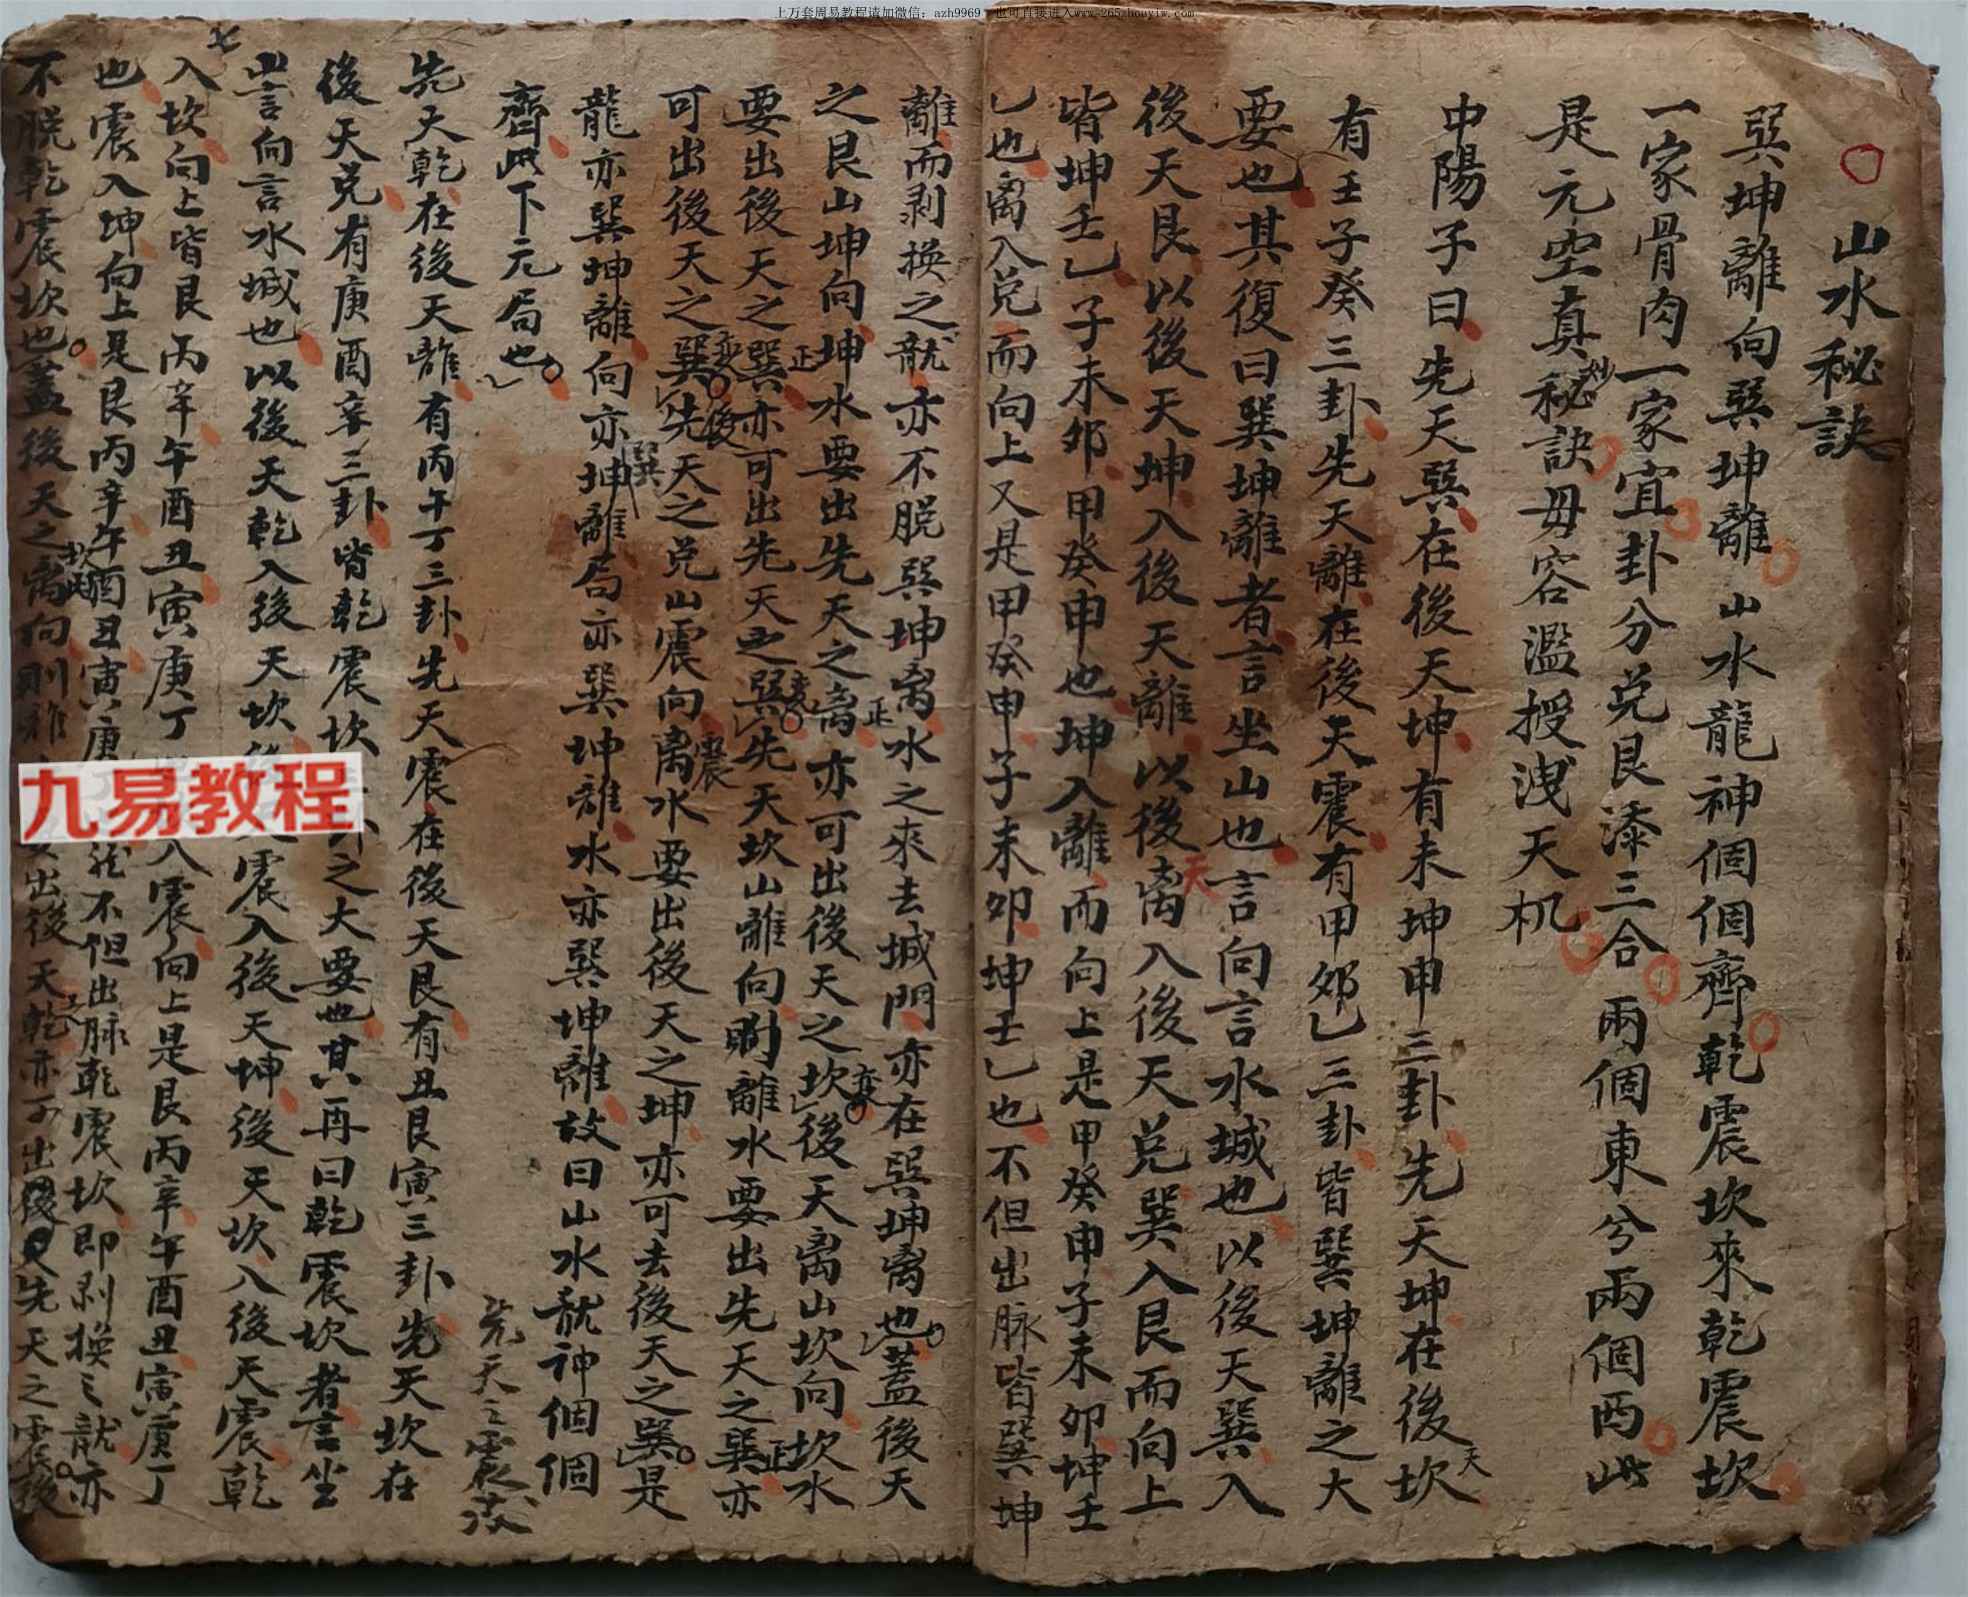 上万套周易教程请加微信：azh9969 也可直接进入www.265zhouyiw.com
山水秘訣
巽坤離向巽坤離山水龍神個個齊乾震坎來乾震坎
一家骨肉一家宜卦分兑艮添三合兩個東兮兩個西此
是元空真秘訣毋容濫授洩天机
妙
中陽子曰先天巽在後天坤有未坤申三卦先天坤在後坎
天
有壬子癸三卦先天離在後天震有甲夘乙三卦皆巽坤離之大
要也其復曰巽坤離者言坐山也言向言水城也以後天巽入
後天艮以後天坤入後天離以後离入後天兑巽入艮而向上
天
皆坤壬乙子未夘甲癸申也坤入離而向上是甲癸申子未夘坤壬
乙也离入兑而向上又是甲癸申子未夘坤壬乙也不但出脉皆巽坤
離而剥换之龍亦不脱巽坤离水之來去城門亦在巽坤离也蓋後天
之艮山坤向坤水要出先天之离亦可出後天之坎後天离山坎向坎水
正
要出後天之巽亦可出先天之巽先天坎山離向離水要出先天之巽亦
正
正
可出後天之巽先天之兑山震向离水要出後天之坤亦可去後天之巽是
震
龍亦巽坤離向亦坤離局亦巽坤離水亦巽坤離故曰山水龍神個個
巽
齊此下元局也
先天乾在後天離有丙午丁三卦先天震在後天艮有丑艮寅三卦先天坎在
後天兑有庚酉辛三卦皆乾震坎之大要也其再曰乾震坎者言坐
山言向言水城也以後天乾入後天坎震入後天坤後天坎入後天震乾
入坎向上皆艮丙辛午酉丑寅庚丁入震向上是艮丙辛午酉丑寅庚丁
也震入坤向上是艮丙辛午酉丑寅庚不但出脉乾震坎即剥换之龍亦
不脱乾震坎也蓋後天之离向則出後天乾亦可出後先天之震後
九易教程